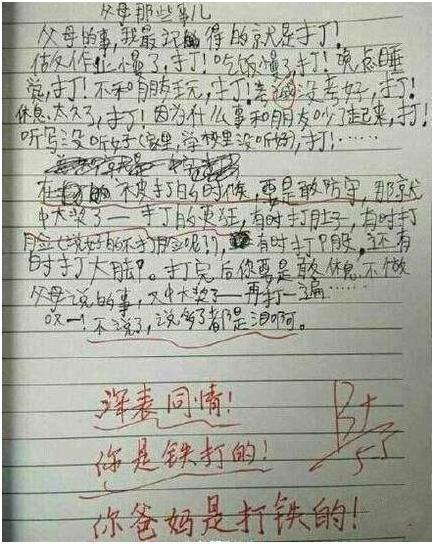 父母那些事儿
父母的事，我最记的得的就是打！
做反作业慢了，打！吃饭慢了打！晚点睡
觉，打！不和朋友玩，打！考试没考好，打！
休息太久了，打！因为什么事和朋友吵了起来，打！
听写没听好（家里，学校里没听好），打！……
在 不皮打的时候，要是敢防守，那就
中大奖了——打的更狂，有时打肚子，有时打
脸（说好的不打脸呢！），有时打PP股，还有
时打大腿。打完后你要是敢休息，不做
父母说的事，又中大奖了——再打一遍……
哎－！不说了，说多了都是泪啊。
深表同情！
你是铁打的！
B+
5
你爸妈是打铁的！